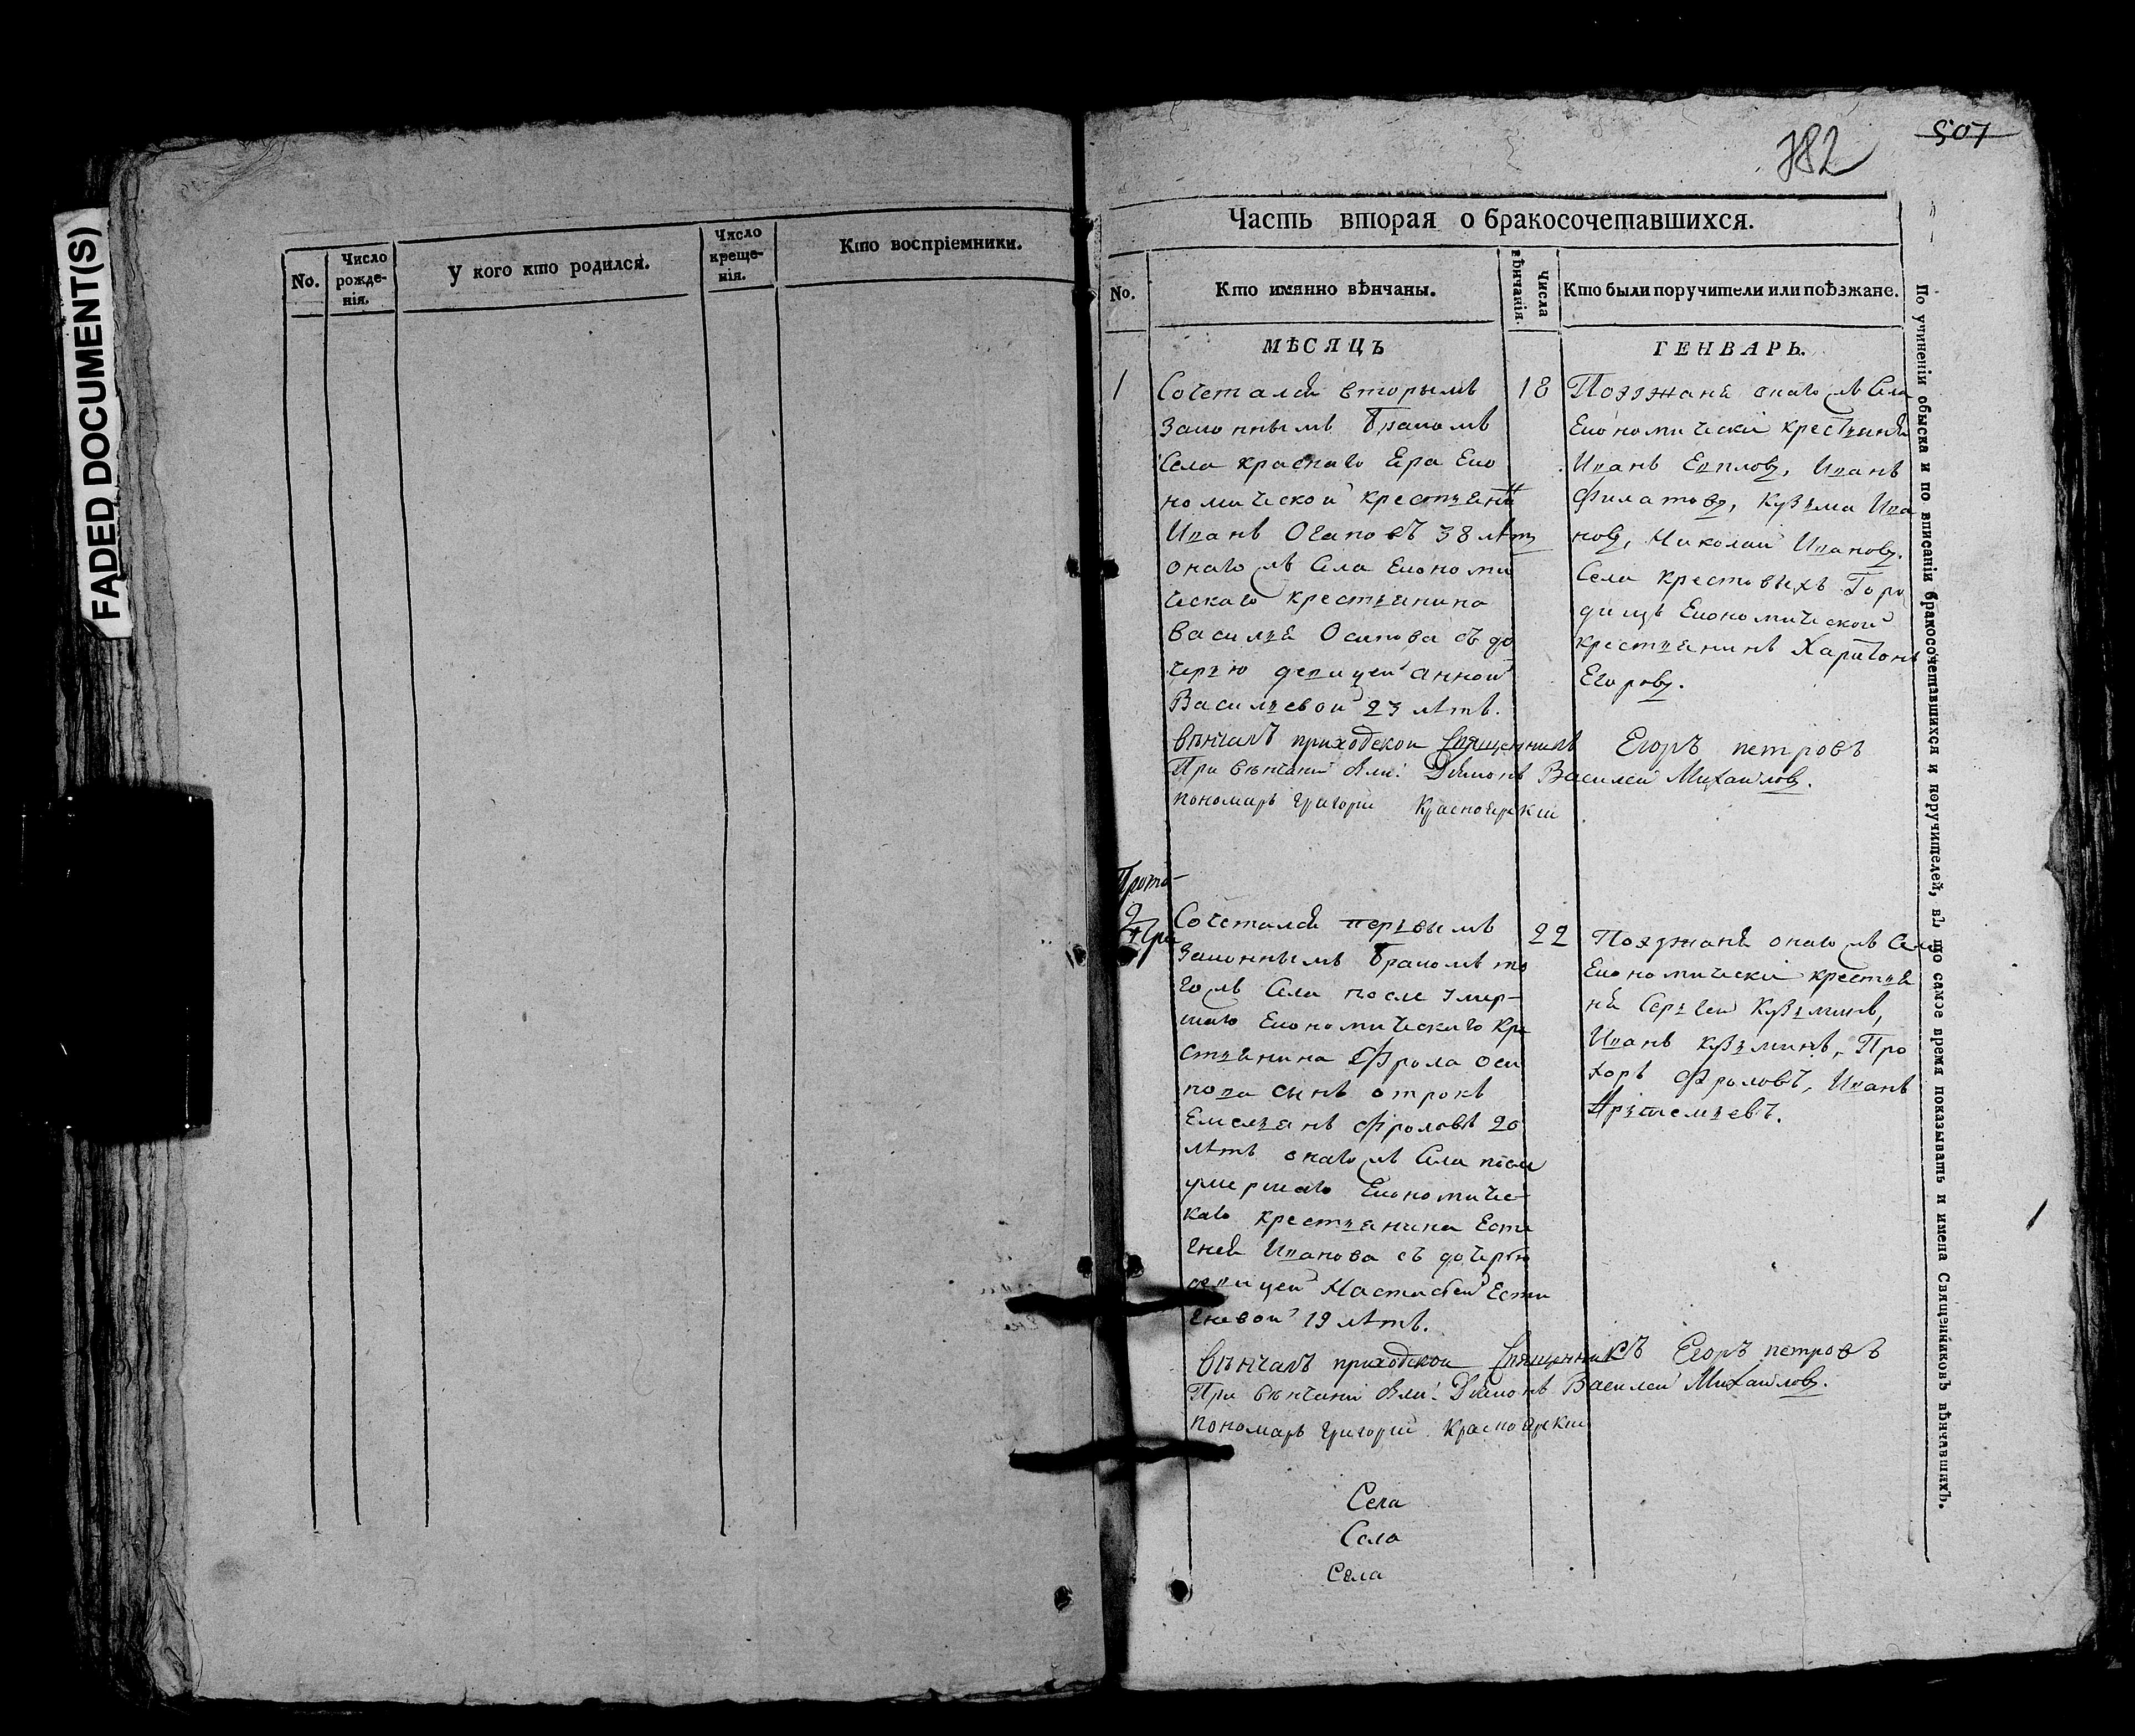 FADED DOCUMENT(S)
No.
Число рожде-нія.
У кого кто родился.
Число креще-нія.
Кто воспріемники.
382
507
Часть вторая о бракосочетавшихся.
No.
Кто имянно вѣнчаны.
Числа вѣнчанія.
Кто были поручители или поѣзжане.
МѢСЯЦЪ
ГЕНВАРЬ.
1
Сочетался вторымъ
законнымъ бракомъ
села краснаго Яра Еко
номической крестьянинъ
Иванъ 38 лѣтъ
онаго жъ села Економи
ческаго крестьянина
Василья Осипова съ до
черью девицей анной
Васильевой 23 лѣтъ.
18
Поѣзжанѣ онаго жъ села
Економически крестьянѣ
Иванъ Иванъ
Филатовъ, Кузьма Ива
новъ, Николай Ивановъ.
Села крестовыхъ Горо
дищъ Економической
крестьянинъ Харитонъ
Егоровъ.
вѣнчалъ приходской Священникъ Егоръ петровъ
При вѣнчаніи были: Дьяконъ Василей Михайловъ.
пономарь григорій Красноярскій
2
Сочетался первымъ
законнымъ бракомъ то
го жъ села после умер-
шаго Економическаго кре
стьянина Фрола оси
пова сынъ отрокъ
Емельянъ Фроловъ 20
лѣтъ онаго жъ села после
умершаго Економичес-
каго крестьянина Евсти
гнея Иванова съ дочерью
девицей Настасьей Евсти
гневой 19 лѣтъ.
22
Поѣзжанѣ онаго жъ села
Економически крестья
нѣ Сергей Кузьминъ,
Иванъ кузьминъ, Про
хоръ Фроловъ, Иванъ
Артемьевъ.
вѣнчалъ приходской Священникъ Егоръ петровъ
При вѣнчаніи были: Дьяконъ Василей Михайловъ.
пономарь григорій Красноярскій
Села
Села
Села
По учиненіи обыска и по вписаніи бракосочетавшихся и поручителей, въ то самое время показывать и имена Священниковъ вѣнчавшихъ.